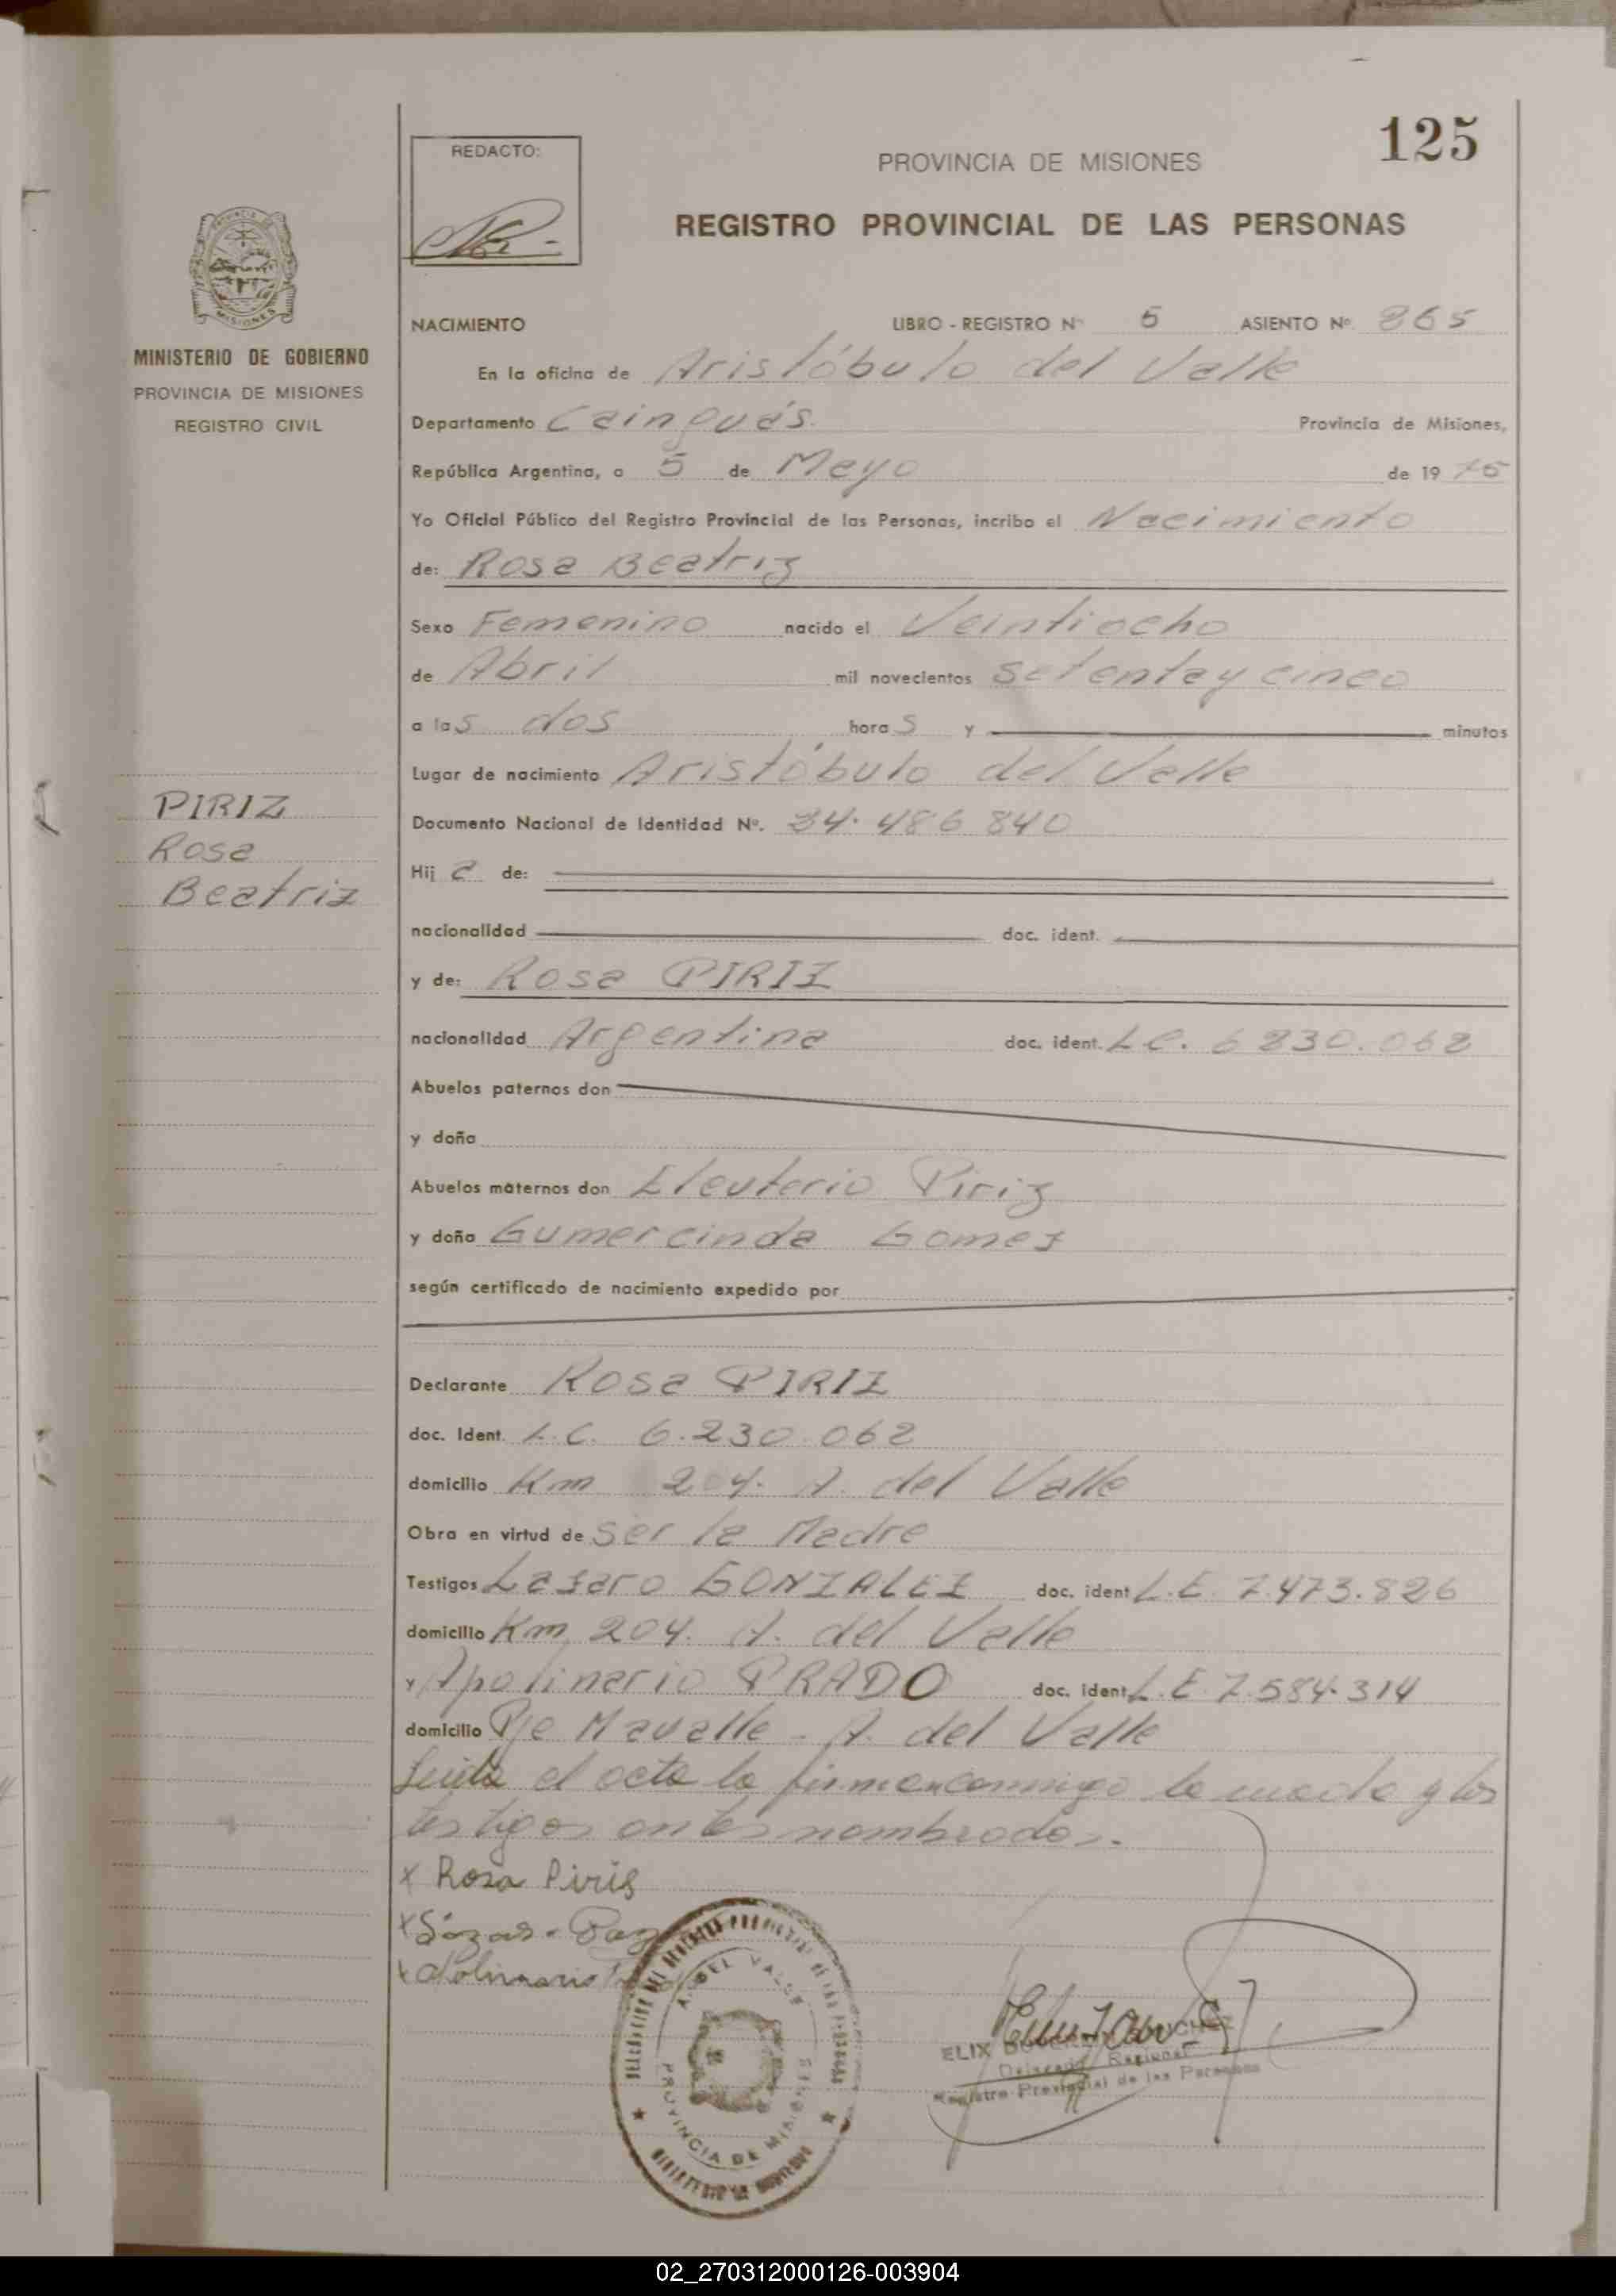 125
REDACTO:
PROVINCIA DE MISIONES
REGISTRO PROVINCIAL DE LAS PERSONAS
MINISTERIO DE GOBIERNO
PROVINCIA DE MISIONES
REGISTRO CIVIL
NACIMIENTO LIBRO - REGISTRO Nº 5 ASIENTO Nº 865
En la oficina de Aristóbulo del Valle
Departamento Cainguás. Provincia de Misiones,
República Argentina, a 5 de Mayo de 19 75
Yo Oficial Público del Registro Provincial de las Personas, incribo el Nacimiento
de: Rosa Beatriz
Sexo Femenino nacido el Veintiocho
de Abril mil novecientos setenta y cinco
a las dos horas y minutos
Lugar de nacimiento Aristóbulo del Valle
PIRIZ
Rosa
Beatriz
Documento Nacional de Identidad Nº. 24.486 840
Hija de:
nacionalidad doc. ident.
y de: Rosa PIRIZ
nacionalidad Argentina doc. ident. L.C. 6 230.062
Abuelos paternos don
y doña
Abuelos maternos don Eleuterio Piriz
y doña Gumercinda Gomez
según certificado de nacimiento expedido por
Declarante Rosa PIRIZ
doc. Ident. L.C. 6.230.062
domicilio Km 204. A. del Valle
Obra en virtud de ser la Madre
Testigos Lazaro GONZALEZ doc. ident L.E. 7.473.826
domicilio Km 204. A. del Valle
y Apolinario PRADO doc. ident L.E 7.584.314
domicilio Pje Mavalle - A. del Valle
Leida el acta la firman conmigo la madre y los
testigos antes nombrados.
x Rosa Piris
x
x Polinario
A. DEL VALLE
PROVINCIA DE MISIONES
ELIX SANCHEZ
Delegado Regional
Registro Provincial de las Personas
02_270312000126-003904